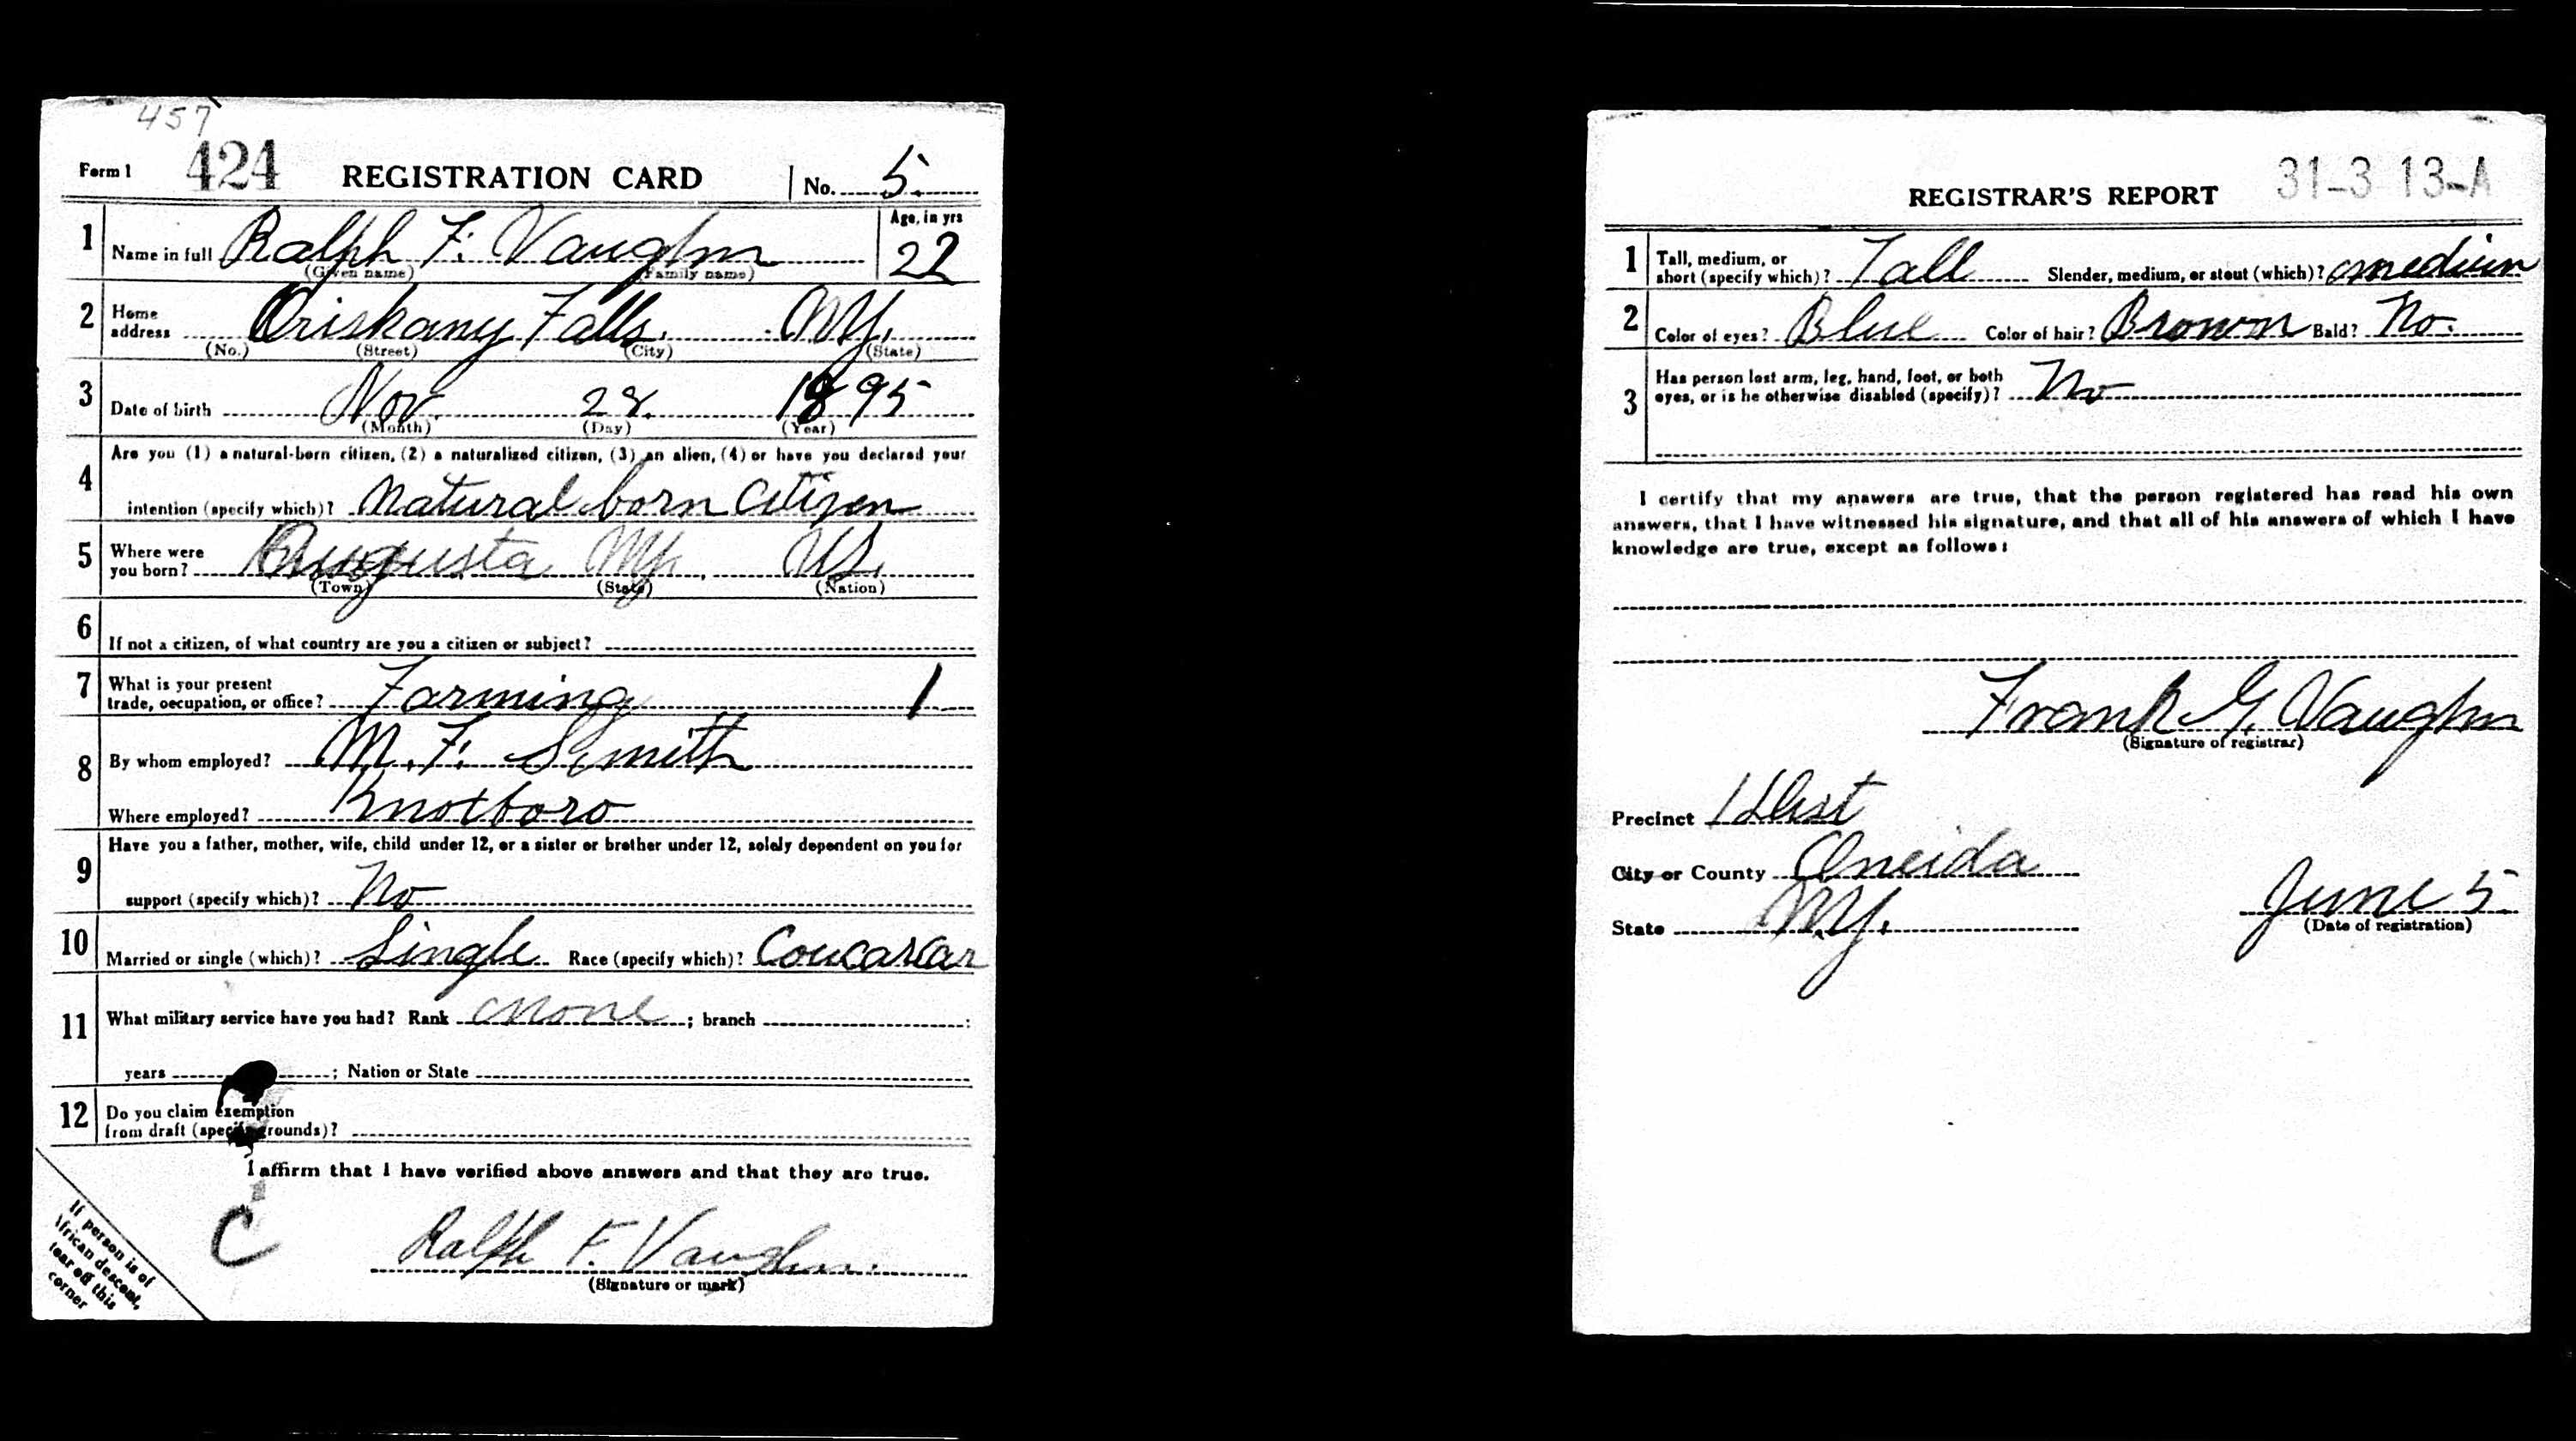 457
Form 1 424 REGISTRATION CARD No. 5.
1 Name in full Ralph F. Vaughn Age, in yrs 22
(Given name) (Family name)
2 Home address Oriskany Falls. N.Y.
(No.) (Street) (City) (State)
3 Date of birth Nov. 28. 1895
(Month) (Day) (Year)
4 Are you (1) a natural-born citizen, (2) a naturalized citizen, (3) an alien, (4) or have you declared your
intention (specify which)? Natural born Citizen
5 Where were you born? Augusta N.Y. U.S.
(Town) (State) (Nation)
6 If not a citizen, of what country are you a citizen or subject?
7 What is your present
trade, occupation, or office? Farming 1
8 By whom employed? M. F. Smith
Where employed? Knoxboro
9 Have you a father, mother, wife, child under 12, or a sister or brother under 12, solely dependent on you for
support (specify which)? No
10 Married or single (which)? Single Race (specify which)? Coucasian
11 What military service have you had? Rank None ; branch ;
years ; Nation or State
12 Do you claim exemption
from draft (specify grounds)?
I affirm that I have verified above answers and that they are true.
C Ralph F. Vaughn.
(Signature or mark)
If person is of
African descent,
tear off this
corner
REGISTRAR'S REPORT 31-3 13-A
1 Tall, medium, or
short (specify which)? Tall Slender, medium, or stout (which)? medium
2 Color of eyes? Blue Color of hair? Brown Bald? No.
3 Has person lost arm, leg, hand, foot, or both
eyes, or is he otherwise disabled (specify)? No
I certify that my answers are true, that the person registered has read his own
answers, that I have witnessed his signature, and that all of his answers of which I have
knowledge are true, except as follows:
Frank G. Vaughn
(Signature of registrar)
Precinct 1 Dist
City or County Oneida
State N.Y. June 5
(Date of registration)